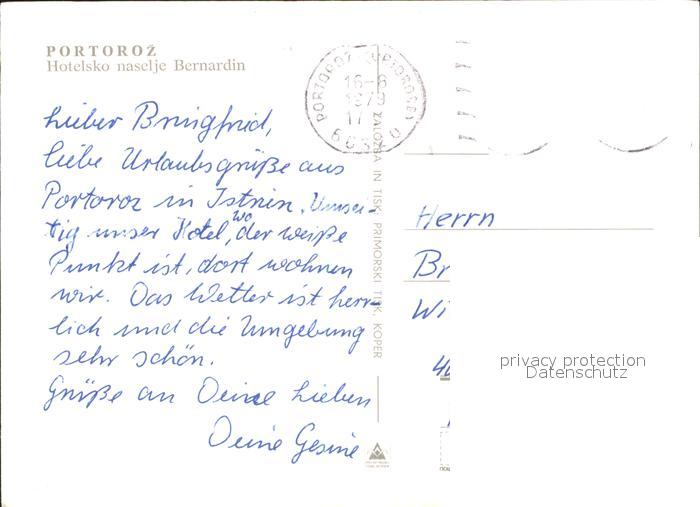 PORTOROŽ
Hotelsko naselje Bernardin
Lieber Bringfrid,
liebe Urlaubsgrüße aus
Portoroz in Istrien. Umsei-
tig unser Hotel, wo der weiße
Punkt ist, dort wohnen
wir. Das Wetter ist herr-
lich und die Umgebung
sehr schön.
Grüße an Deine Lieben
Deine Gesine
PORTOROŽ
16-6
1979
17
66320
ZALOŽBA IN TISK: PRIMORSKI TISK, KOPER
Herrn
Br
Wi
privacy protection
Datenschutz